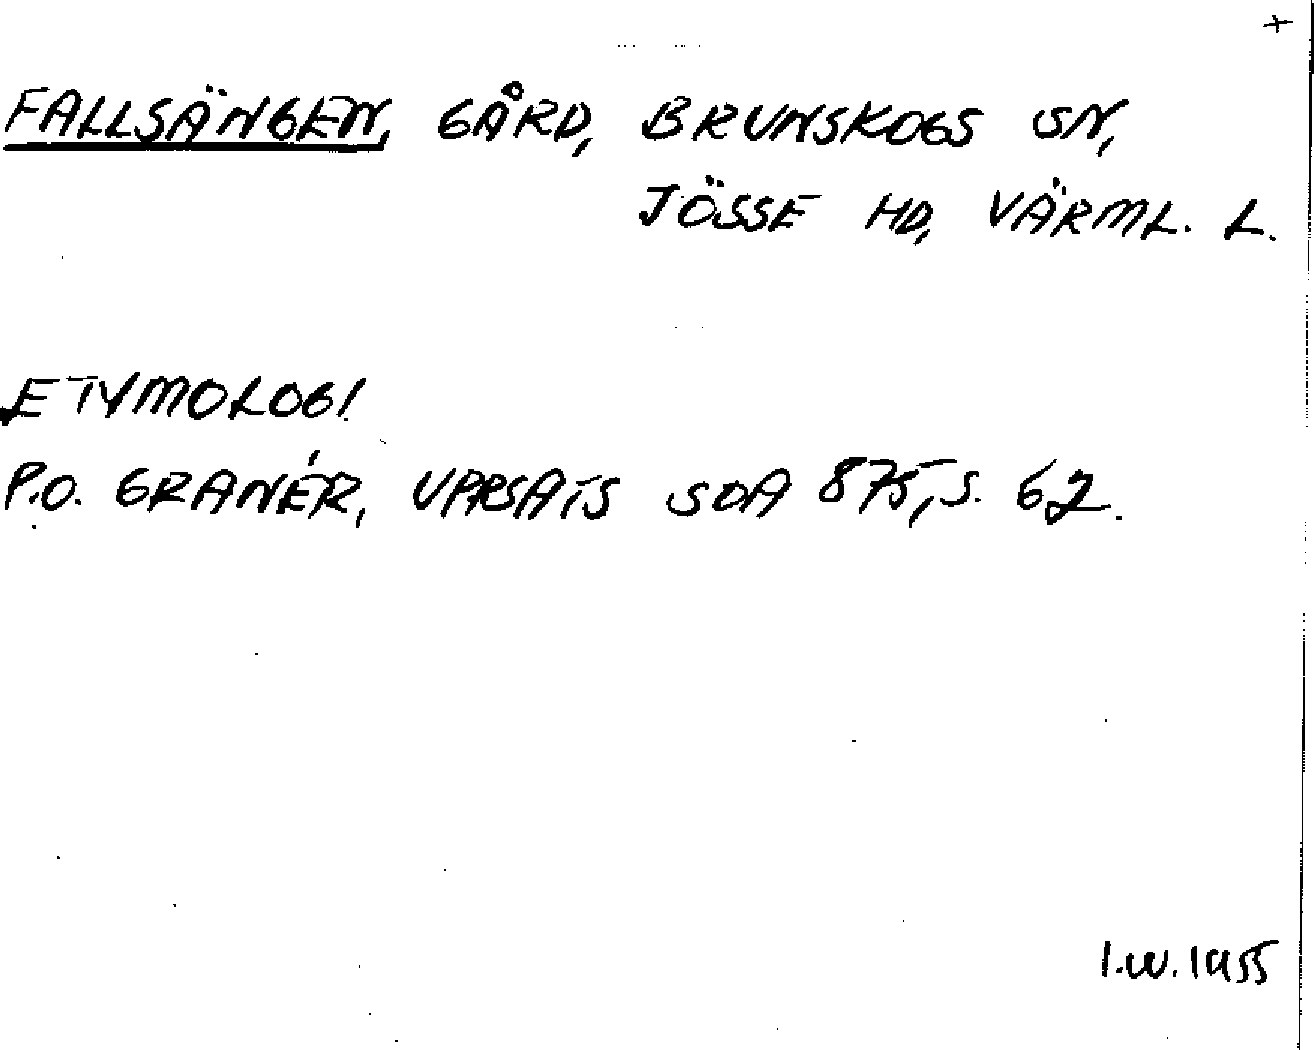 +
FALLSÄNGEN, GÅRD, BRUNSKOGS SN,
JÖSSE HD, VÄRML. L.
ETYMOLOGI
P.O. GRANÉR, UPPSATS SOA 875, S. 62.
I.W. 1955